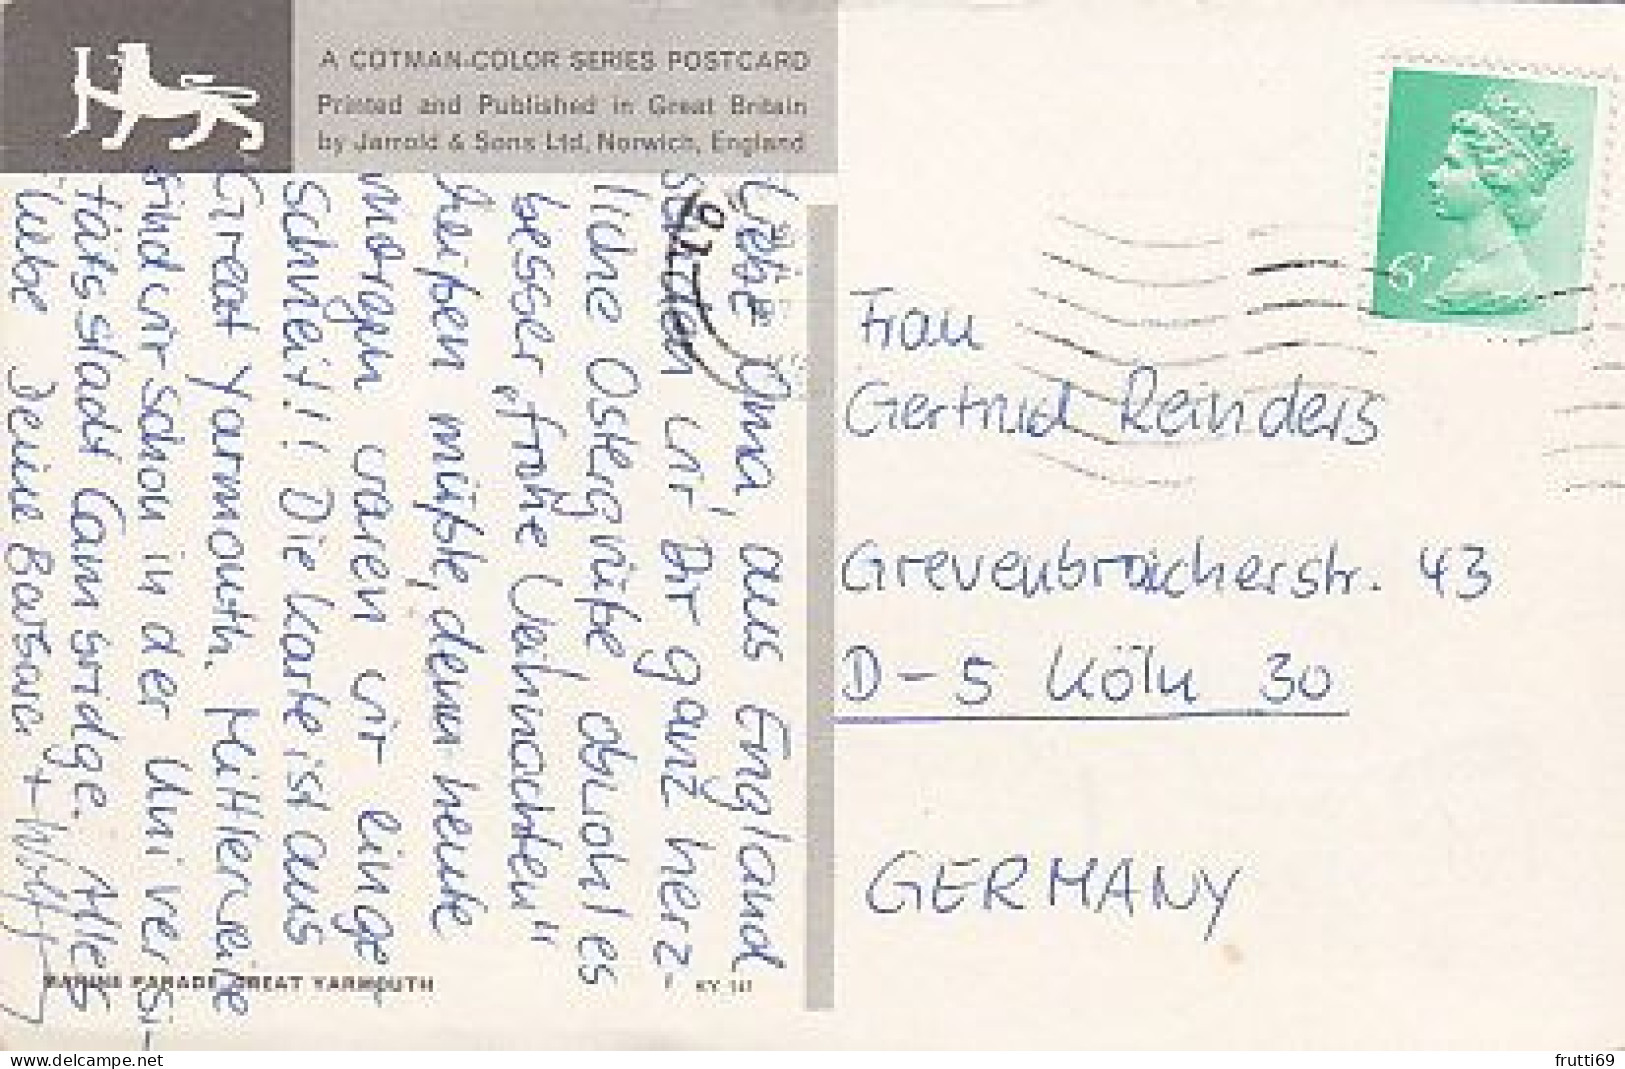 A COTMAN-COLOR SERIES POSTCARD
Printed and Published in Great Britain
by Jarrold & Sons Ltd, Norwich, England
Liebe Oma, aus England
senden wir Dir ganz herz-
liche Ostergrüße, obwohl es
besser „frohe Weihnachten"
heißen müßte, denn heute
morgen waren wir einge-
schneit!!! Die Karte ist aus
Great Yarmouth. Mittlerweile
sind wir schon in der Universi-
tätsstadt Cambridge. Alles
Liebe Deine Barbara + Wolfg
MARINE PARADE, GREAT YARMOUTH
KY 141
6P
Frau
Gertrud Reinders
Grevenbroicherstr. 43
D-5 Köln 30
GERMANY
www.delcampe.net
frutti69